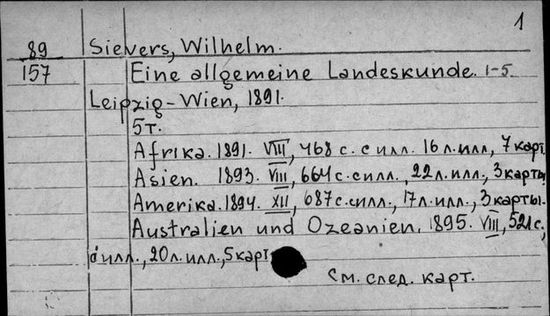 1
89 Sievers, Wilhelm.
157 Eine allgemeine Landeskunde. 1-5
Leipzig-Wien, 1891.
5т.
Afrika. 1891. VIII, 468 с. с илл. 16 л. илл, 7 карт
Asien. 1893. VIII, 664 с. с илл., 22 л. илл., 3 карты
Amerika. 1894. XII, 687 с. с илл., 17 л. илл., 3 карты.
Australien und Ozeanien. 1895. VIII, 521 с,
с илл., 20 л. илл., 5 карт
См. след. карт.